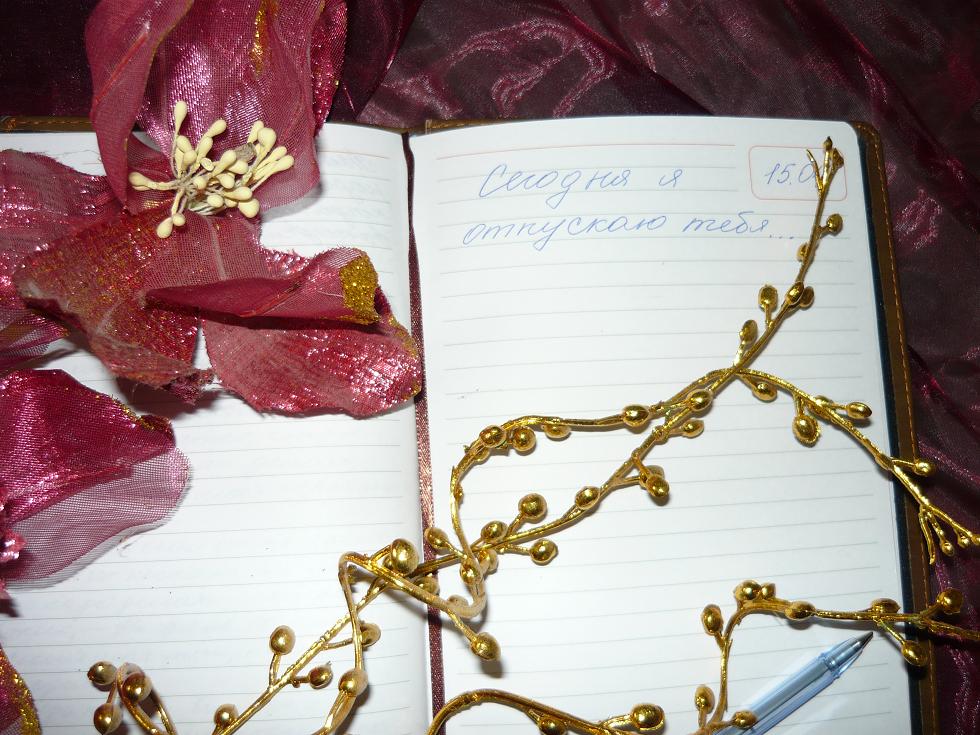 Сегодня я
отпускаю тебя...
15.0